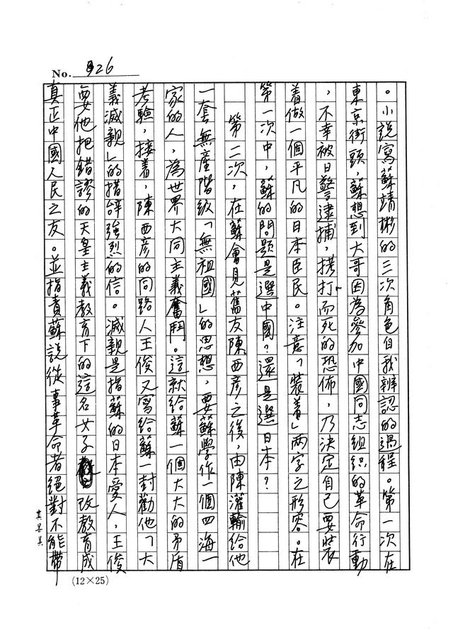 No. 26
。小說寫蘇靖彬的三次角色自我辨認的過程。第一次在
東京街頭，蘇想到大哥因為參加中國同志組織的革命行動
，不幸被日警逮捕，拷打而死的恐怖，乃決定自己要裝
着做一個平凡的日本臣民。注意「裝着」两字之形容。在
第一次中，蘇的問題是選中國。還是選日本？
第二次，在蘇會見舊友陳西彦之後，由陳灌輸給他
一套無產階級「無祖國」的思想，要蘇學作一個四海一
家的人，為世界大同主義奮鬥。這就給蘇一個大大的矛盾
考驗，接着，陳西彦的同路人王俊又寫給蘇一封勸他「大
義滅親」的措辞強烈的信。滅親是指蘇的日本愛人，王俊
要他把錯謬的天皇主義教育下的這名女子改教育成
真正中國人民之友。並指責蘇說從事革命者絕對不能帶
(12×25)